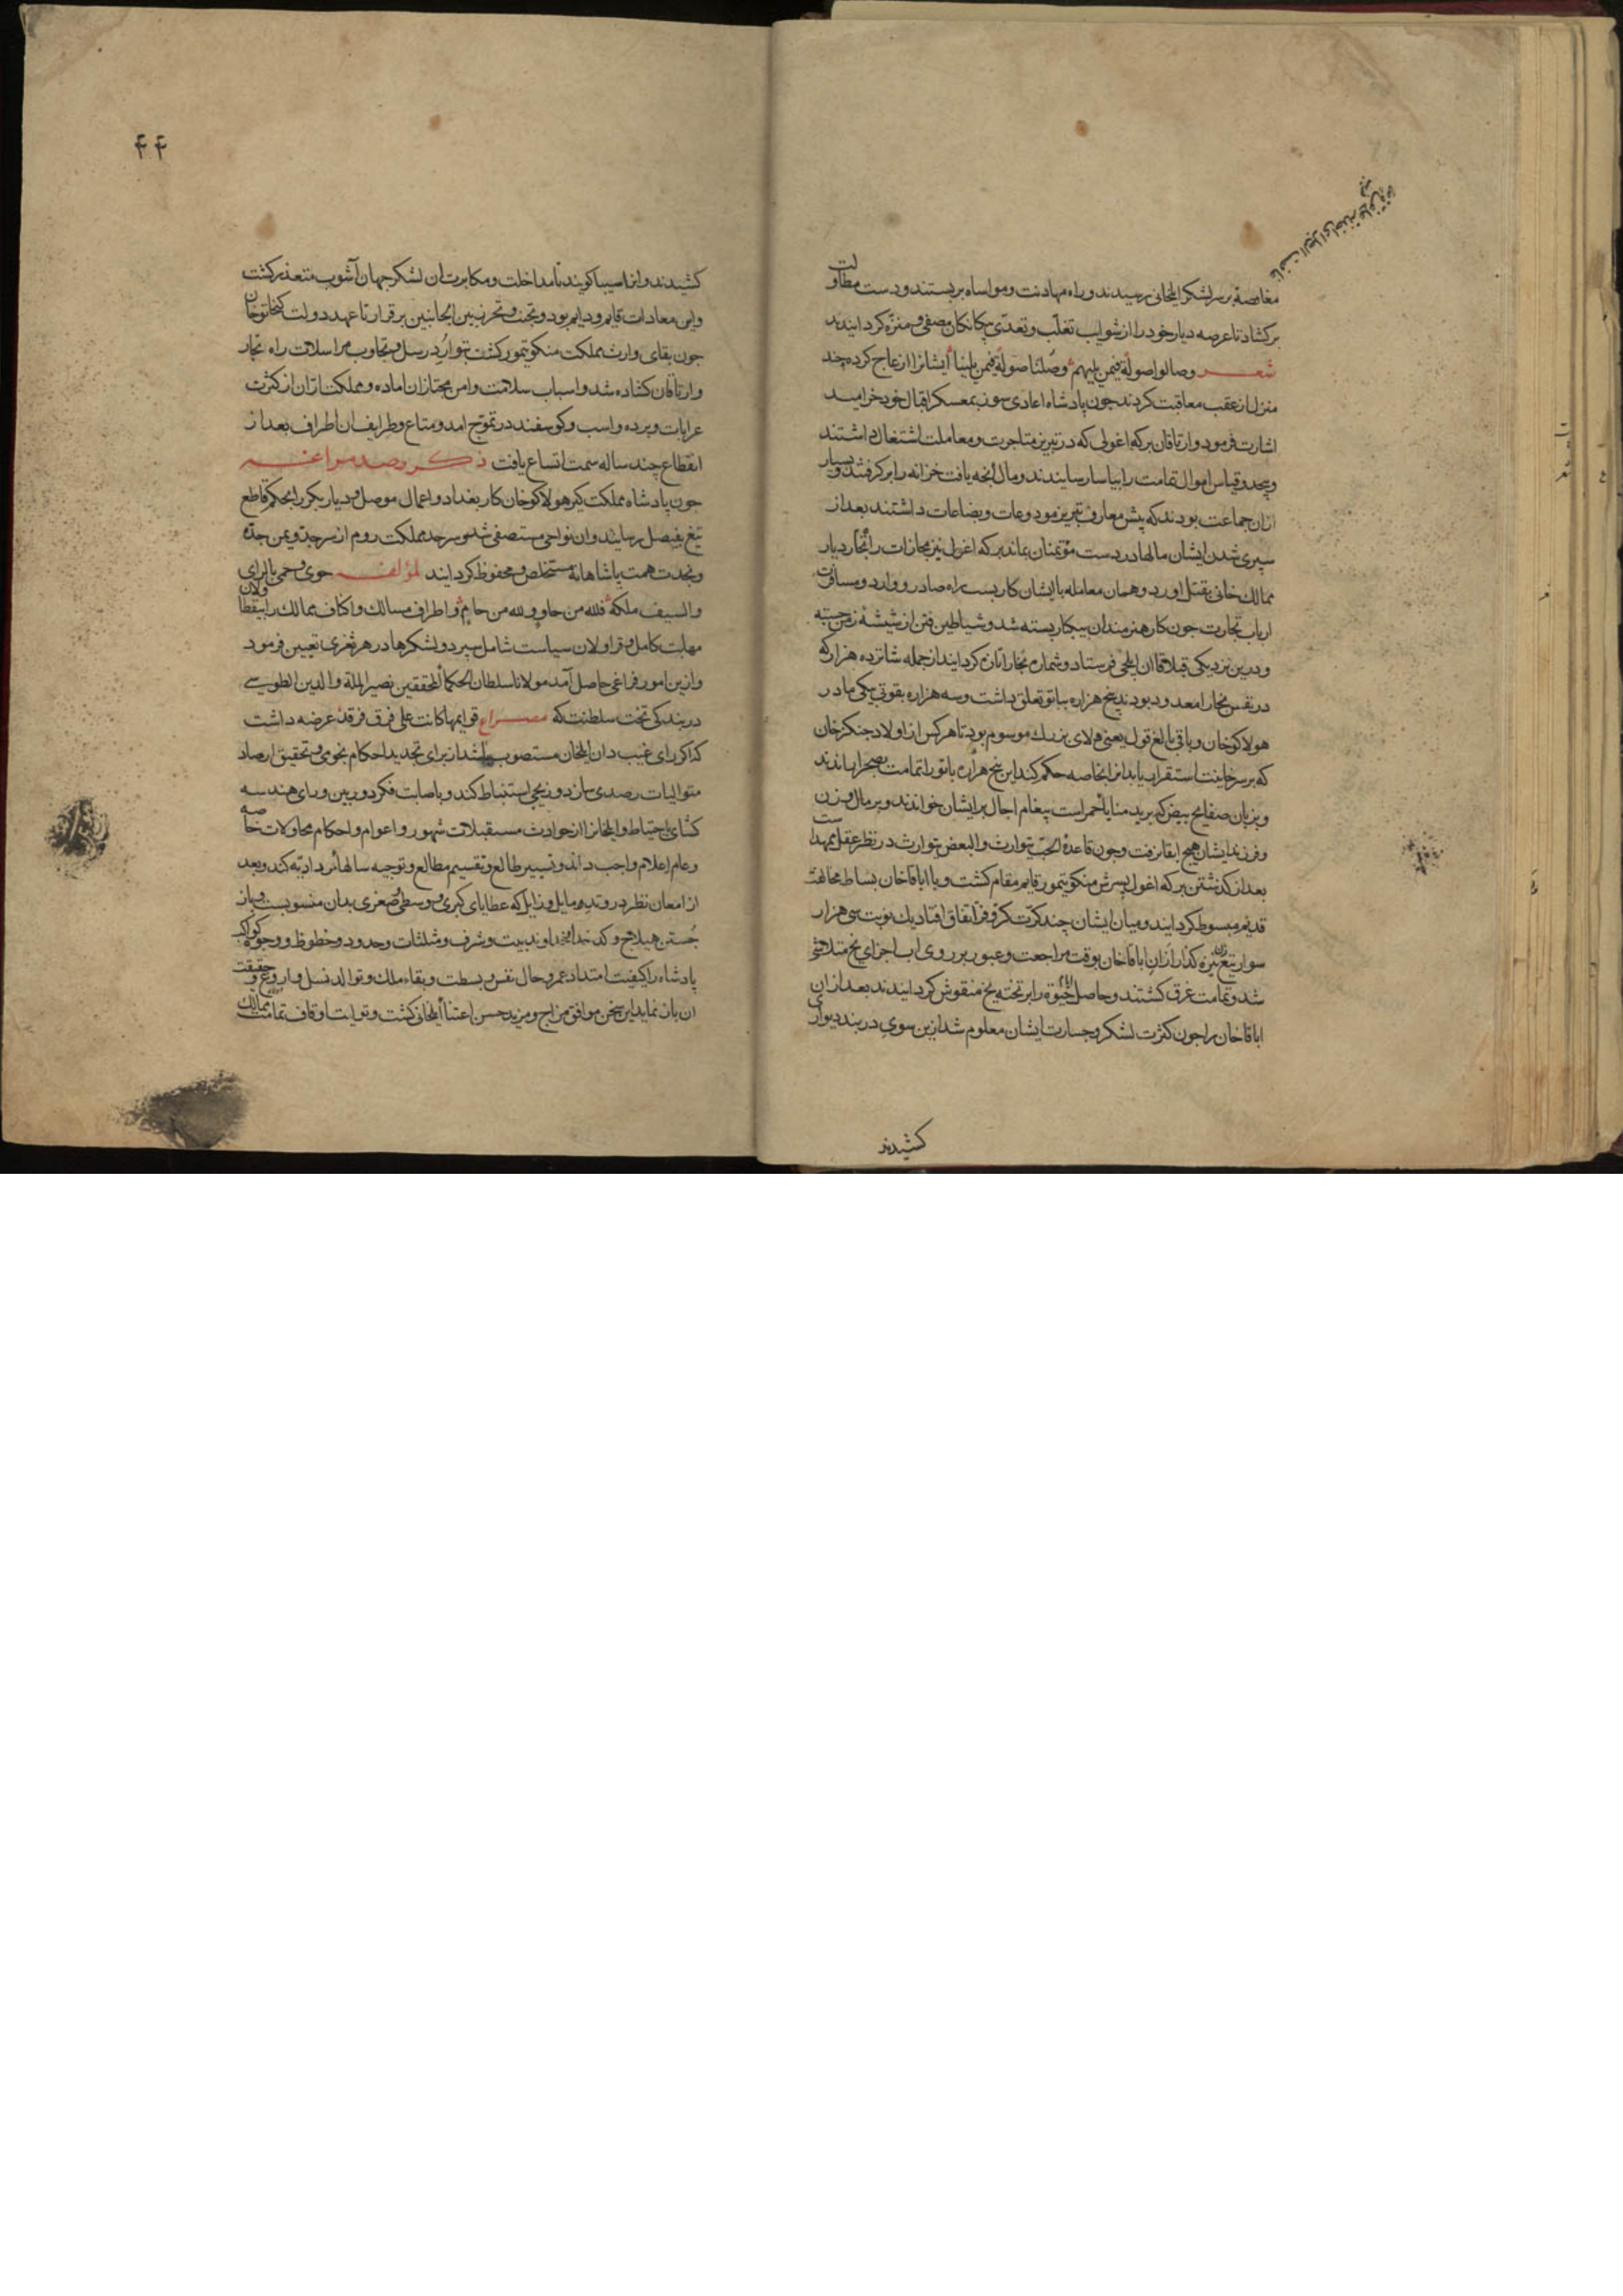 مغافصة بر سر لشکر ایلخانی رسیدند و راه مهادنت و مواساه بربستند و دست مطاولت
برکشاد تا عرصه دیار خود را از شوایب تغلّب و تعدّی بیکانکان مصفی و منزّه کردانیدند
شعر وصالوا صولة فیمن یلیهم وصُلنا صولة فیمن یلینا ایشانرا ازعاج کرده چند
منزل از عقب معاقبت کردند جون پادشاه اعادی سوز بمعسکر اقبال خود خرامید
اشارت فرمود و ارتاقان برکه اغول که در تبریز متاجرت و معاملت اشتغال داشتند
و بیحد و قیاس اموال تمامت را بیاسا رسانیدند و مال آنجه یافت خزانه را برکرفتند و بسیار
ازان جماعت بودند که پیش معارف تبریز مودوعات و بضاعات داشتند بعد از
سپری شدن ایشان مالها در دست مؤتمنان بماند برکه اغول نیز مجازات را تجار دیار
ممالک خانی بقتل آورد و همان معامله با ایشان کار بست راه صادر و وارد و مسافرت
ارباب تجارت جون کار هنرمندان بیکار بسته شد و شیاطین فتن از شیشهٔ زمن جسته
و درین نزدیکی قبلا قاآن ایلجی فرستاد و شماره بخارا تازه کردانید از جمله شانزده هزار که
در نفس بخارا معدود بودند پنج هزاره بباتو تعلق داشت و سه هزاره بقوتی بیکی مادر
هولاکو خان و باقی بالغ قول یعنی دلای بزرک موسوم بود تا هرکس از اولاد جنکز خان
که بر سر خانیت استقرار یابد انرا بخاصه حکم کند این پنج هزاره باتو را تمامت بصحرا راندند
و بزبان صفایح بیض که برید منایا احمر است پیغام اجال بر ایشان خواندند و بر مال و زن
و فرزند ایشان هیج ابقا نرفت وجون قاعدهٔ الحبّ یتوارث والبغض یتوارث در نظر عقل ممهد است
بعد از کذشتن برکه اغول پسرش منکو تیمور قایم مقام کشت و با اباقا خان بساط مخالفت
قدیم مبسوط کردانید و میان ایشان چند کرّت کرّ و فرّ اتفاق افتاد یک نوبت سی هزار
سوار تیغ زن نیزه کذار از ان اباقا خان بوقت مراجعت و عبور بر روی اب اجزای یخ متلاشی
شد و تمامت غرق کشتند و حاصل حیوة را بر تخته یخ منقوش کردانیدند بعد ازان
اباقا خان را جون کثرت لشکر و جسارت ایشان معلوم شد ازین سوی دربند دیواری
کشیدند
۴۴
کشیدند و انرا سیبا کویند تا مداخلت و مکابرت ان لشکر جهان آشوب متعذر کشت
و این معادات قایم و دایم بود و تجنّب و تحرز بین الجانبین برقرار تا عهد دولت کیخاتو خان
جون بقای وارث مملکت منکو تیمور کشت بتوارد رسل و تجاوب مراسلات راه تجار
و ارتاقان کشاده شد و اسباب سلامت و امن مجتازان اماده و مملکت ارّان از کثرت
عرابات و برده و اسب و کوسفند در تموّج امد و متاع و طرایف ان اطراف بعد از
انقطاع چند ساله سمت اتساع یافت ذکر رصد مراغه
جون پادشاه مملکت کیر هولاکو خان کار بغداد و اعمال موصل و دیاربکر را بحکم قاطع
تیغ بفیصل رسانید و ان نواحی مستصفی شد و سرحد مملکت روم از سر جدّ و یمن جدّه
و نجدت همت پادشاهانه مستخلص و محفوظ کردانید لمؤلفه حوی و حمی بالرای
والسیف ملکه فلله من حاو و لله من حام و اطراف مسالک و اکناف ممالک را بیقظا ولان
مهابت کامل و قراولان سیاست شامل سپرد و لشکرها در هر ثغری تعیین فرمود
و ازین امور فراغی حاصل آمد مولانا سلطان الحکماء المحققین نصیر الملة والدین الطوسی
در بندکی تخت سلطنت که مصراع قوایمها کانت علی فرق فرقد عرضه داشت
که اکر رای غیب دان ایلخان مستصوب باشد از برای تجدید احکام نجومی و تحقیق ارصاد
متوالیات رصدی سازد و زیجی استنباط کند و باصابت فکر دوربین و رای هندسه
کشای باحتیاط و ایلخانرا از حوادث مستقبلات شهور و اعوام و احکام محاولات خاصه
و عام اعلام واجب داند و تسییر طالع و تقسیم مطالع و توجیه سالها نرداریه کند و بعد
از امعان نظر در وتد و مایل و زایل که عطایای کبری و وسطی و صغری بدان منسوبست و باز
جُستن هیلاج و کدخدا خداوند بیت و شرف و مثلثات و حدود و خطوط و وجوه کواکب
پادشاه را کیفیت امتداد عمر و حال نفس و بسطت و بقاء ملک و توالد نسل و اروغ و حقیقت
ان باز نماید این سخن موافق مزاج و مزید حسن اعتناء ایلخانی کشت و تولیت اوقاف تمامت ممالک